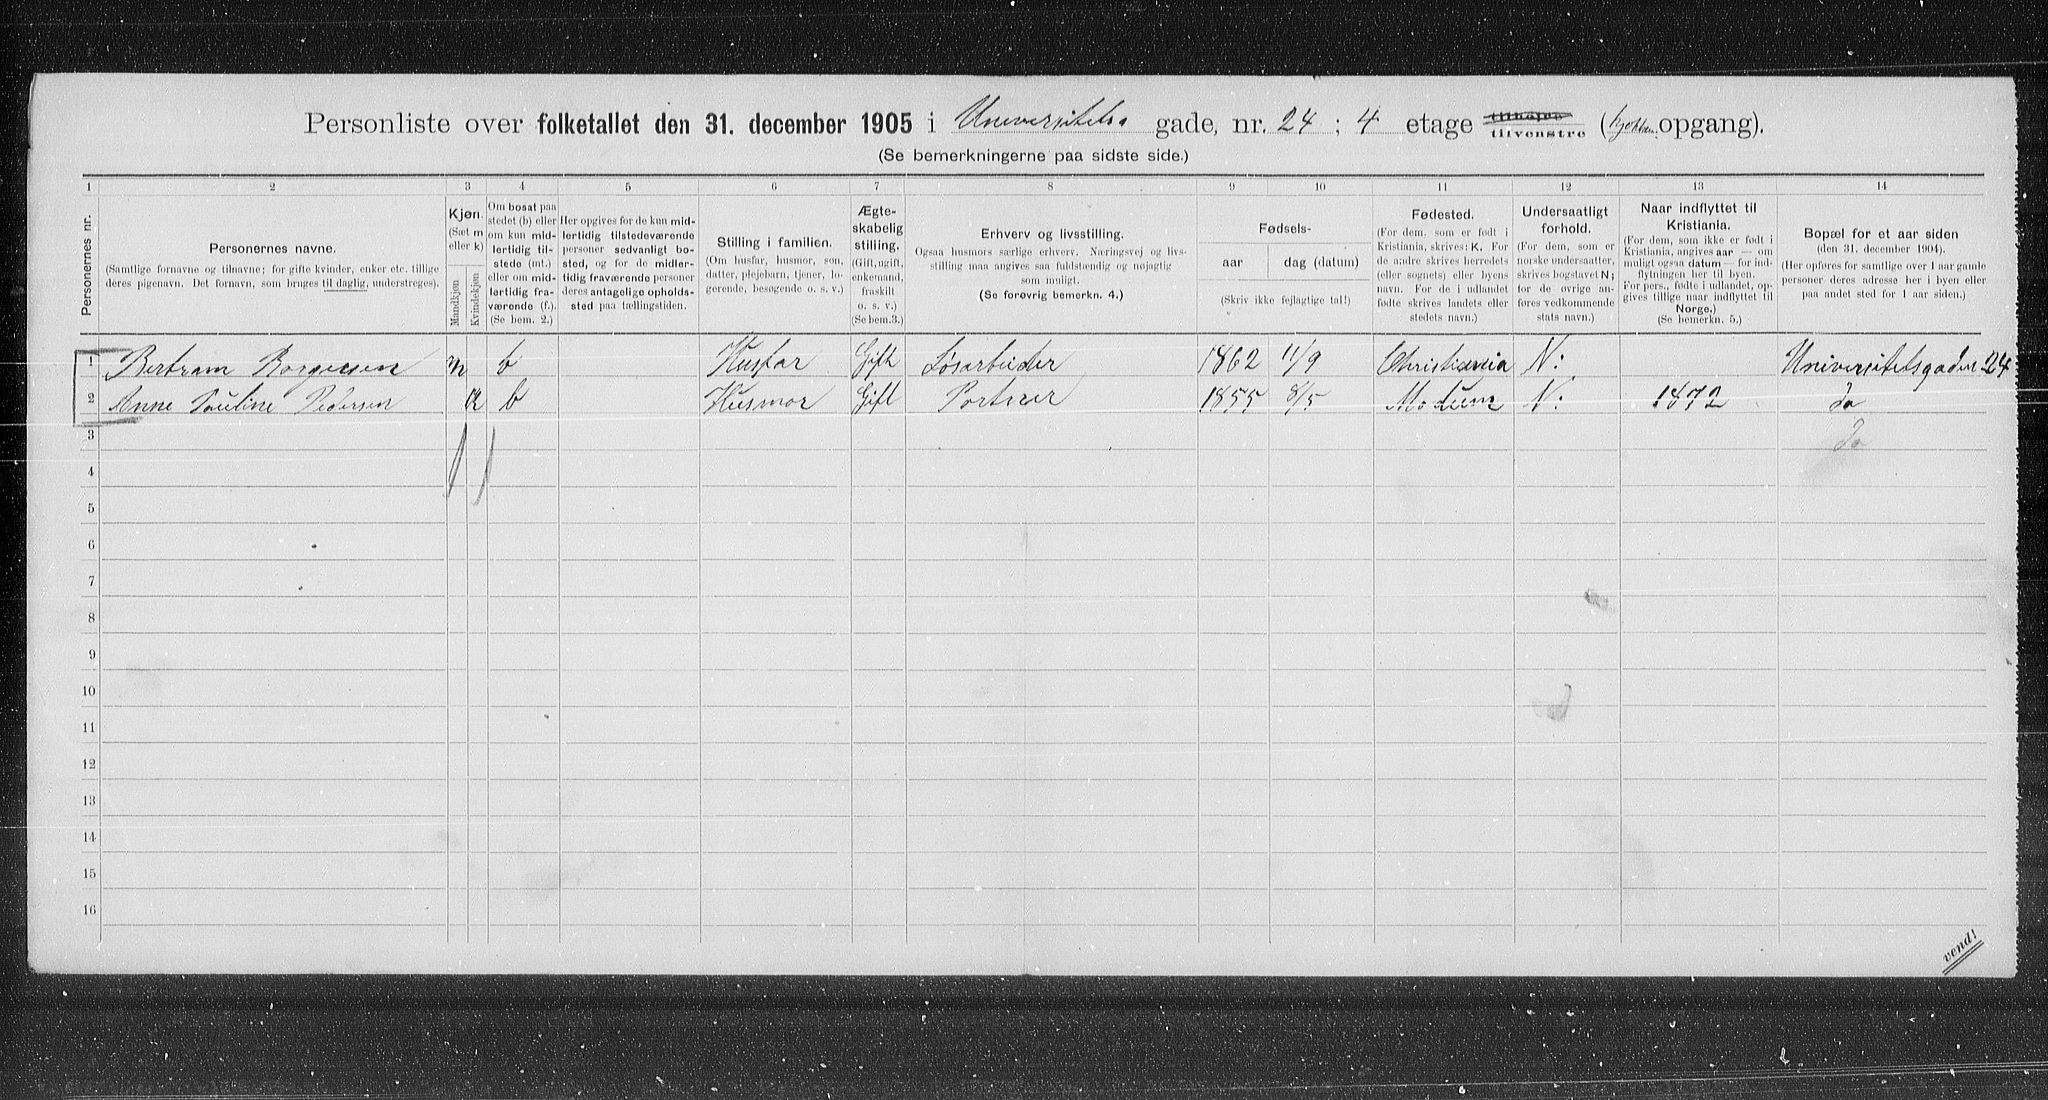 Personliste over folketallet den 31. december 1905 i Universitets gade, nr. 24 ; 4 etage tilhøjre tilvenstre (kjøkken opgang).
(Se bemerkningerne paa sidste side.)
1 2 3 4 5 6 7 8 9 10 11 12 13 14
Personernes nr.
Personernes navne.
(Samtlige fornavne og tilnavne; for gifte kvinder, enker etc. tillige
deres pigenavn. Det fornavn, som bruges til daglig, understreges).
Kjøn.
(Sæt m
eller k)
Mandkjøn
Kvindekjøn
Om bosat paa
stedet (b) eller
om kun mid-
lertidig til-
stede (mt.)
eller om mid-
lertidig fra-
værende (f.).
(Se bem. 2.)
Her opgives for de kun mid-
lertidig tilstedeværende
personer sedvanligt bo-
sted, og for de midler-
tidig fraværende personer
deres antagelige opholds-
sted paa tællingstiden.
Stilling i familien.
(Om husfar, husmor, søn,
datter, plejebarn, tjener, lo-
gerende, besøgende o. s. v.)
Ægte-
skabelig
stilling.
(Gift, ugift,
enkemand,
fraskilt
o. s. v.)
(Se bem.3.)
Erhverv og livsstilling.
Ogsaa husmors særlige erhverv. Næringsvej og livs-
stilling maa angives saa fuldstændig og nøjagtig
som muligt.
(Se forøvrig bemerkn. 4.)
Fødsels-
aar dag (datum)
(Skriv ikke fejlagtige tal!)
Fødested.
(For dem, som er født i
Kristiania, skrives: K. For
de andre skrives herredets
(eller sognets) eller byens
navn. For de i udlandet
fødte skrives landets eller
stedets navn.)
Undersaatligt
forhold.
(For dem, som er
norske undersaatter,
skrives bogstavet N;
for de øvrige an-
føres vedkommende
stats navn.)
Naar indflyttet til
Kristiania.
(For dem, som ikke er født i
Kristiania, angives aar — om
muligt ogsaa datum — for ind-
flytningen her til byen.
For pers., fødte i udlandet, op-
gives tillige naar indflyttet til
Norge.)
(Se bemerkn. 5.)
Bopæl for et aar siden
(den 31. december 1904).
(Her opføres for samtlige over 1 aar gamle
personer deres adresse her i byen eller
paa andet sted for 1 aar siden.)
1 Bertram Borgersen m b Husfar Gift Løsarbeider 1862 11/9 Christiania N: Universitetsgaden 24
2 Anne Pauline Pedersen k b Husmor Gift Portner 1855 8/5 Modum N: 1872 Do
3 Do
4
5
6
7
8
9
10
11
12
13
14
15
16
vend!